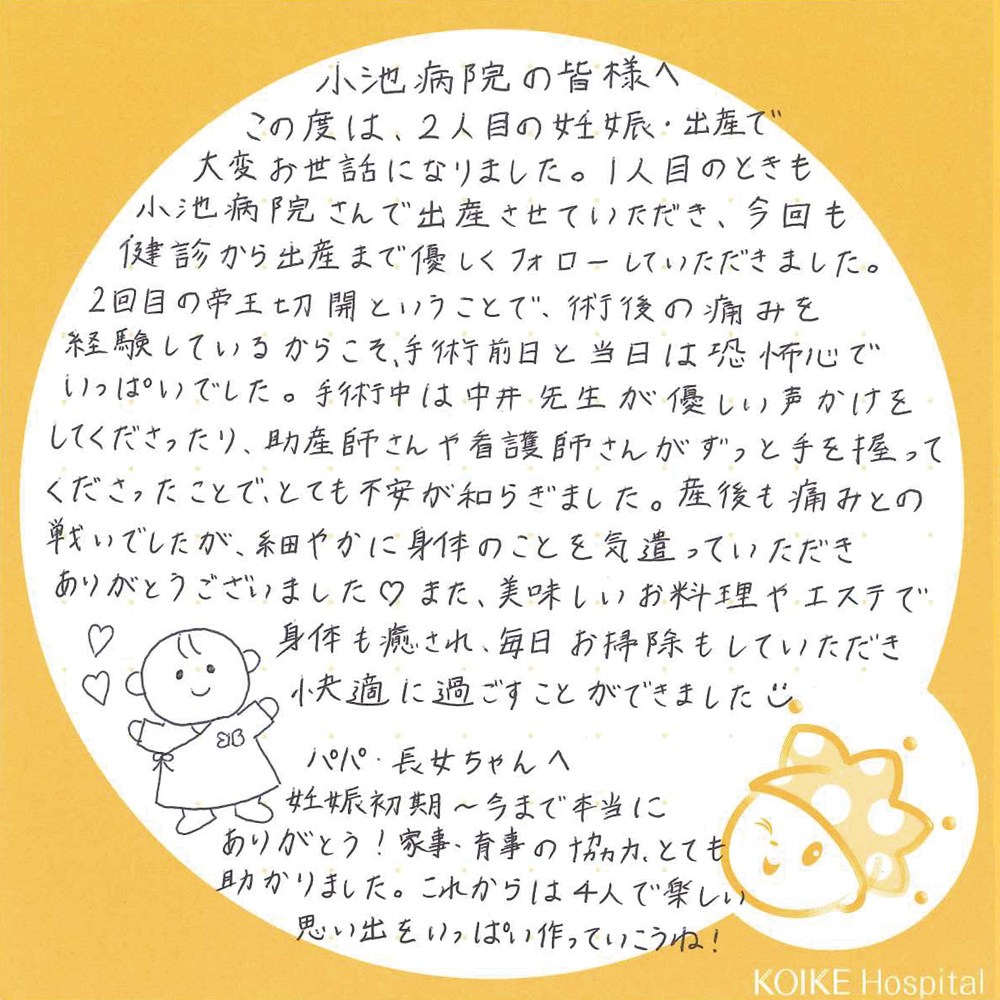 小池病院の皆様へ
この度は、2人目の妊娠・出産で
大変お世話になりました。1人目のときも
小池病院さんで出産させていただき、今回も
健診から出産まで優しくフォローしていただきました。
2回目の帝王切開ということで、術後の痛みを
経験しているからこそ、手術前日と当日は恐怖心で
いっぱいでした。手術中は中井先生が優しい声かけを
してくださったり、助産師さんや看護師さんがずっと手を握って
くださったことで、とても不安が和らぎました。産後も痛みとの
戦いでしたが、細やかに身体のことを気遣っていただき
ありがとうございました♡また、美味しいお料理やエステで
身体も癒され、毎日お掃除もしていただき
快適に過ごすことができました
パパ・長女ちゃんへ
妊娠初期～今まで本当に
ありがとう!家事・育事の協力、とても
助かりました。これからは4人で楽しい
思い出をいっぱい作っていこうね!
KOIKE Hospital